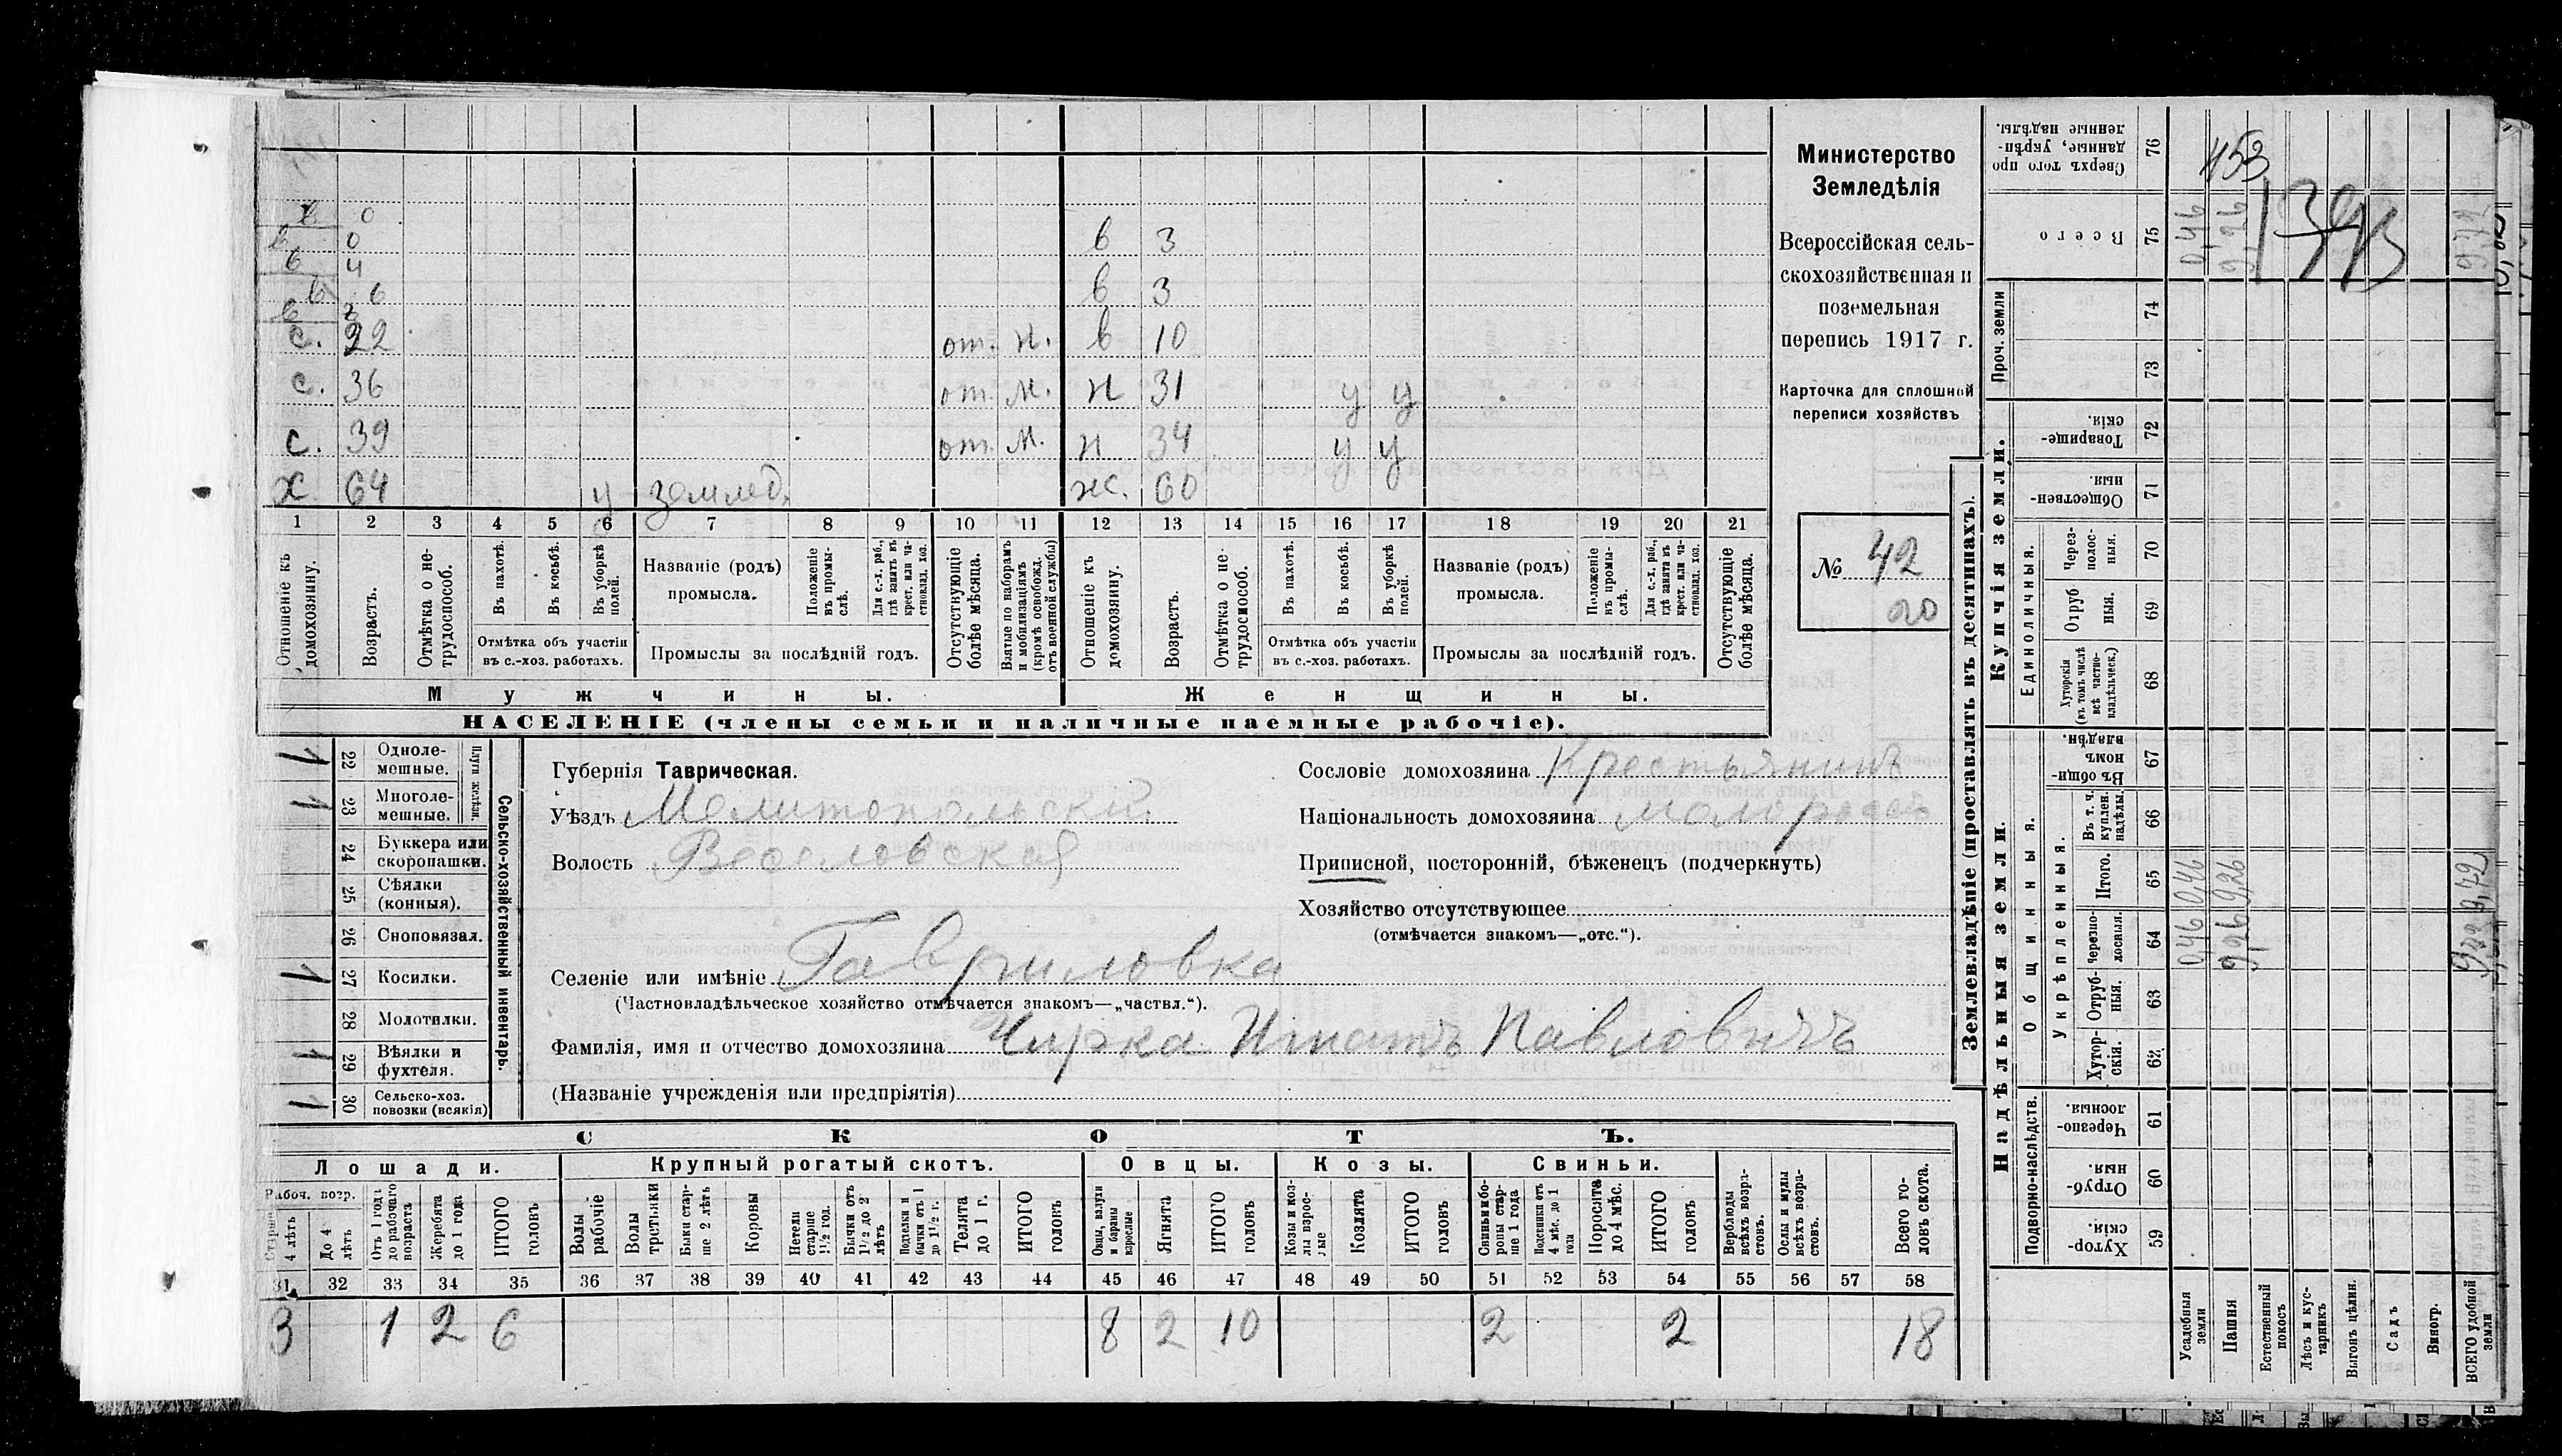 х 0
в 0 в 3
в 4
в 6 в 3
в
с. 22 от. н. в 10
с. 36 от. м. н 31 у у
с. 39 от. м. н 34 у у
х 64 у землед. ж. 60
1 2 3 4 5 6 7 8 9 10 11 12 13 14 15 16 17 18 19 20 21
Отношеніе къ домохозяину.
Возрастъ.
Отмѣтка о не-трудоспособ.
Въ пахотѣ.
Въ косьбѣ.
Въ уборкѣ полей.
Отмѣтка объ участіи
въ с.-хоз. работахъ.
Названіе (родъ)
промысла.
Положеніе въ промы-слѣ.
Для с.-х. раб., гдѣ занятъ въ крест. или ча-стновлад. хоз.
Промыслы за послѣдній годъ.
Отсутствующіе болѣе мѣсяца.
Взятые по наборамъ и мобилизаціямъ (кромѣ освобожд. отъ военной службы)
Отношеніе къ домохозяину.
Возрастъ.
Отмѣтка о не-трудоспособ.
Въ пахотѣ.
Въ косьбѣ.
Въ уборкѣ полей.
Отмѣтка объ участіи
въ с.-хоз. работахъ.
Названіе (родъ)
промысла.
Положеніе въ промы-слѣ.
Для с.-х. раб., гдѣ занята въ крест. или ча-стновлад. хоз.
Промыслы за послѣдній годъ.
Отсутствующіе болѣе мѣсяца.
Мужчины. Женщины.
НАСЕЛЕНІЕ (члены семьи и наличные наемные рабочіе).
Министерство
Земледѣлія
Всероссійская сель-
скохозяйственная и
поземельная
перепись 1917 г.
Карточка для сплошной
переписи хозяйствъ
№ 42
20
Сельско-хозяйственный инвентарь.
Плуги желѣзн.
1 22 Одноле-мешные.
1 23 Многоле-мешные.
24 Буккера или скоропашки.
25 Сѣялки (конныя).
26 Сноповязал.
1 27 Косилки.
28 Молотилки.
1 29 Вѣялки и фухтеля.
1 30 Сельско-хоз. повозки (всякія)
Губернія Таврическая.
Уѣздъ Мелитопольскій.
Волость Веселовская
Сословіе домохозяина Крестьянинъ
Національность домохозяина малороссъ
Приписной, посторонній, бѣженецъ (подчеркнуть)
Хозяйство отсутствующее
(отмѣчается знакомъ—„отс.“).
Селеніе или имѣніе Гавриловка
(Частновладѣльческое хозяйство отмѣчается знакомъ—„частвл.“).
Фамилія, имя и отчество домохозяина Чирка Игнатъ Павловичъ
(Названіе учрежденія или предпріятія)
СКОТЪ.
Лошади. Крупный рогатый скотъ. Овцы. Козы. Свиньи.
Рабоч. возр.
Старше 4 лѣтъ
До 4 лѣтъ
Отъ 1 года до рабочаго возраста
Жеребята до 1 года
ИТОГО головъ
Волы рабочіе
Волы третьяки
Быки стар-ше 2 лѣтъ
Коровы
Нетели старше 1½ год.
Бычки отъ 1½ до 2 лѣтъ
Подтелки и бычки отъ 1 до 1½ г.
Телята до 1 г.
ИТОГО головъ
Овцы, валухи и бараны взрослые
Ягнята
ИТОГО головъ
Козы и коз-лы взрос-лые
Козлята
ИТОГО головъ
Свиньи и бо-ровы стар-ше 1 года
Подсвинки отъ 4 мѣс. до 1 года
Поросята до 4 мѣс.
ИТОГО головъ
Верблюды всѣхъ возра-стовъ.
Ослы и мулы всѣхъ возра-стовъ.
Всего го-ловъ скота.
31 32 33 34 35 36 37 38 39 40 41 42 43 44 45 46 47 48 49 50 51 52 53 54 55 56 57 58
3 1 2 6 8 2 10 2 2 18
Землевладѣніе (проставлять въ десятинахъ).
Надѣльныя земли. Купчія земли. Проч. земли
Подворно-наслѣдств.
Общинныя.
Укрѣпленныя.
Единоличныя.
Хутор-скія. 59
Отруб-ныя. 60
Черезпо-лосныя. 61
Хутор-скія. 62
Отруб-ныя. 63
Черезпо-лосныя. 64 0,46 9,26
Итого. 65 0,46 9,26 9,72
Въ т. ч. куплен. надѣлы. 66
Въ общин-номъ владѣн. 67
Хуторскія (въ томъ числѣ всѣ частно-владѣльческ.) 68
Отруб-ныя. 69
Через-полос-ныя. 70
Обществен-ныя. 71
Товарище-скія. 72
73
74
Всего 75 0,46 9,26 9,72
Сверхъ того про-данные, укрѣп-ленные надѣлы. 76
453
Усадебныя земли
Пашня
Естественный покосъ
Лѣсъ и кус-тарникъ
Выгонъ цѣлин.
Садъ
Виногр.
ВСЕГО удобной земли